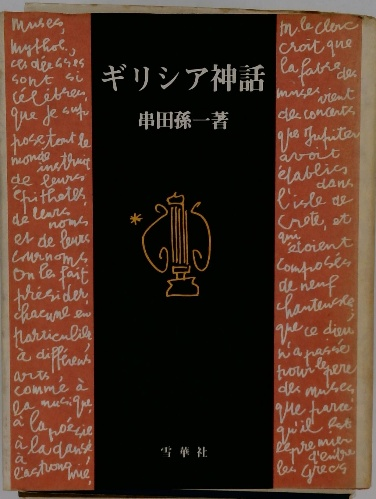 ギリシア神話
串田孫一著
雪華社
muses,
mythol.,
ces déesses
sont si
célèbres,
que je sup
pose tout le
monde instruit
de leurs
épithetes,
de leurs noms
et de leurs
surnoms
on les fait
présider,
chacune en
particulier,
à différens
arts
comme à
la musique,
à la poésie
à la danse
à l'astrono
m. le clerc
croit que
la fable des
muses vient
des concerts
que Jupiter
avoit
établis
dans
l'isle de
Crete, et
qui
étoient
composés
de neuf
chanteuses
que ce dieu
n'a passé
pour le pere
des muses
que parce
qu'il est
le premier
d'entre
les grecs